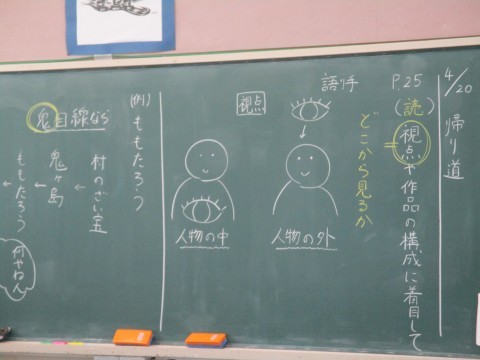 4/20
帰り道
P.25
(読)視点や作品の構成に着目して
語り手
どこから見るか
視点
人物の外
人物の中
(例)ももたろう
鬼目線なら
村のざい宝
鬼ヶ島
ももたろう
何やねん